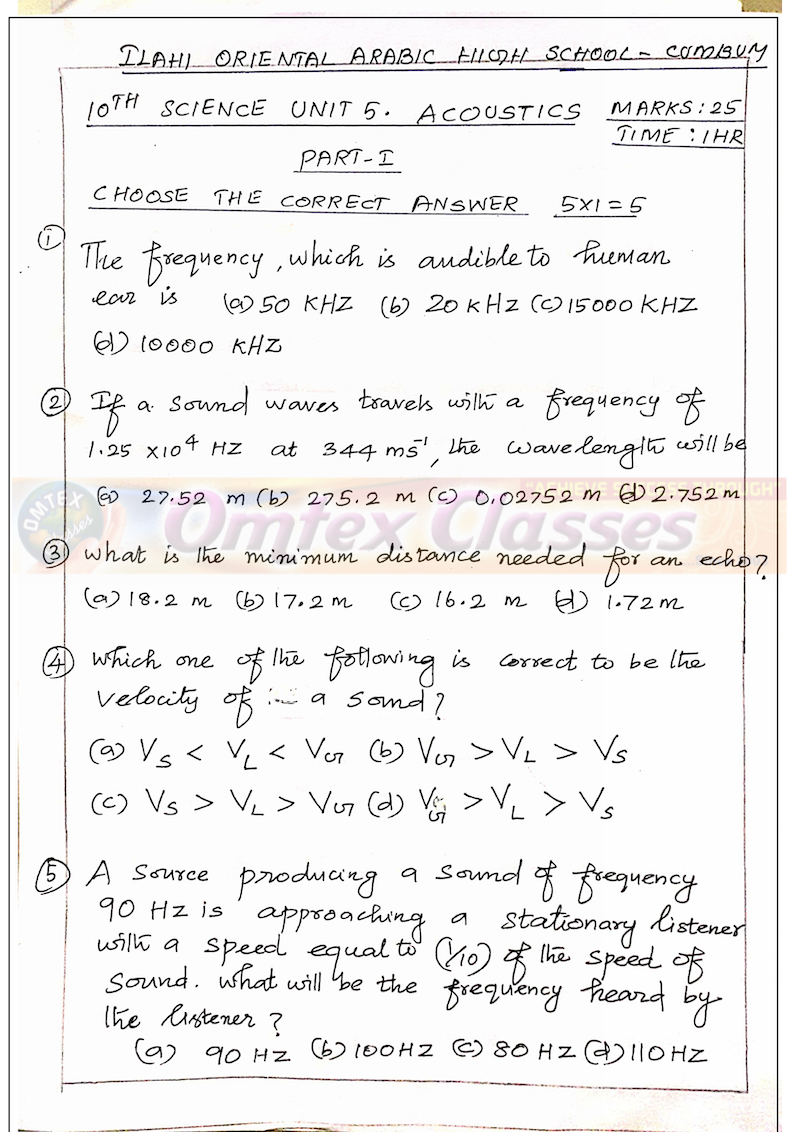 ILAHI ORIENTAL ARABIC HIGH SCHOOL - CUMBUM
10TH SCIENCE UNIT 5. ACOUSTICS MARKS: 25
TIME: 1HR
PART-I
CHOOSE THE CORRECT ANSWER 5X1=5
① The frequency, which is audible to human
ear is (a) 50 KHZ (b) 20 KHZ (c) 15000 KHZ
(d) 10000 KHZ
② If a sound waves travels with a frequency of
1.25 x10⁴ HZ at 344 ms⁻¹, the wavelength will be
(a) 27.52 m (b) 275.2 m (c) 0.02752 m (d) 2.752 m
OMTEX classes Omtex Classes
③ what is the minimum distance needed for an echo?
(a) 18.2 m (b) 17.2 m (c) 16.2 m (d) 1.72 m
④ which one of the following is correct to be the
velocity of a sound?
(a) Vs < VL < VG (b) VG > VL > VS
(c) Vs > VL > VG (d) VG > VL > Vs
⑤ A source producing a sound of frequency
90 HZ is approaching a stationary listener
with a speed equal to (1/10) of the speed of
sound. what will be the frequency heard by
the listener?
(a) 90 HZ (b) 100HZ (c) 80 HZ (d) 110 HZ